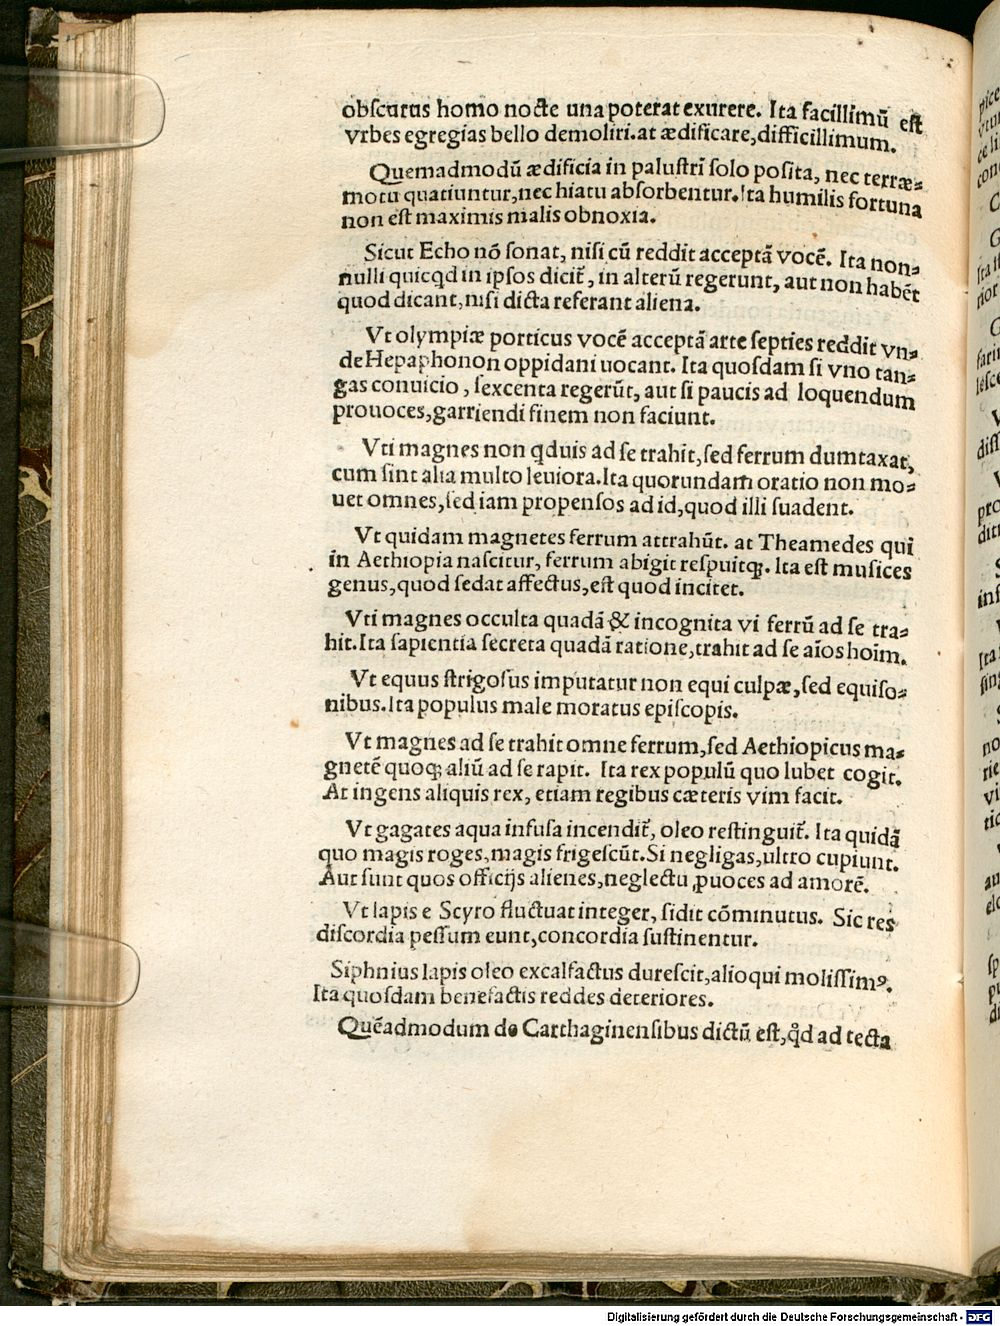 obſcurus homo nocte una poterat exurere. Ita facillimū eſt
vrbes egregias bello demoliri.at ædificare,difficillimum.
Quemadmodū ædificia in paluſtri ſolo poſita, nec terræ⸗
motu quatiuntur,nec hiatu abſorbentur.Ita humilis fortuna
non eſt maximis malis obnoxia.
Sicut Echo nō ſonat, niſi cū reddit acceptā vocē. Ita non⸗
nulli quicꝗd in ipſos dicit̃, in alterū regerunt, aut non habēt
quod dicant,niſi dicta referant aliena.
Vt olympiæ porticus vocē acceptā arte ſepties reddit vn⸗
de Hepaphonon oppidani uocant. Ita quoſdam ſi vno tan⸗
gas conuicio, ſexcenta regerūt, aut ſi paucis ad loquendum
prouoces,garriendi finem non faciunt.
Vti magnes non ꝗduis ad ſe trahit,ſed ferrum dumtaxat,
cum ſint alia multo leuiora.Ita quorundam oratio non mo⸗
uet omnes,ſed iam propenſos ad id,quod illi ſuadent.
Vt quidam magnetes ferrum attrahūt. at Theamedes qui
in Aethiopia naſcitur, ferrum abigit reſpuitꝗ. Ita eſt muſices
genus,quod ſedat affectus,eſt quod incitet.
Vti magnes occulta quadā & incognita vi ferrū ad ſe tra⸗
hit.Ita ſapientia ſecreta quadā ratione,trahit ad ſe aīos hoīm.
Vt equus ſtrigoſus imputatur non equi culpæ,ſed equiſo⸗
nibus.Ita populus male moratus epiſcopis.
Vt magnes ad ſe trahit omne ferrum,ſed Aethiopicus ma⸗
gnetē quoꝗ aliū ad ſe rapit. Ita rex populū quo lubet cogit.
At ingens aliquis rex, etiam regibus cæteris vim facit.
Vt gagates aqua infuſa incendit̃, oleo reſtinguit̃. Ita quidā
quo magis roges,magis frigeſcūt.Si negligas,ultro cupiunt.
Aut ſunt quos officijs alienes,neglectu ꝓuoces ad amorē.
Vt lapis e Scyro fluctuat integer, ſidit cōminutus. Sic res
diſcordia peſſum eunt,concordia ſuſtinentur.
Siphnius lapis oleo excalfactus dureſcit,alioqui molliſſimꝰ.
Ita quoſdam benefactis reddes deteriores.
Quēadmodum de Carthaginenſibus dictū eſt,ꝙd ad tecta
Digitalisierung gefördert durch die Deutsche Forschungsgemeinschaft - DFG